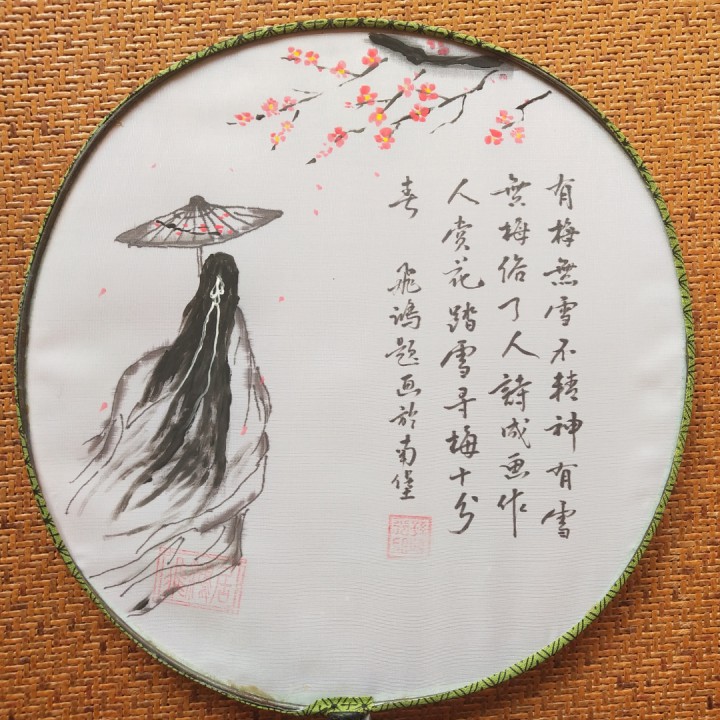 有梅無雪不精神有雪
無梅俗了人詩成画作
人賞花踏雪寻梅十分
春 飛鴻题画於南堡